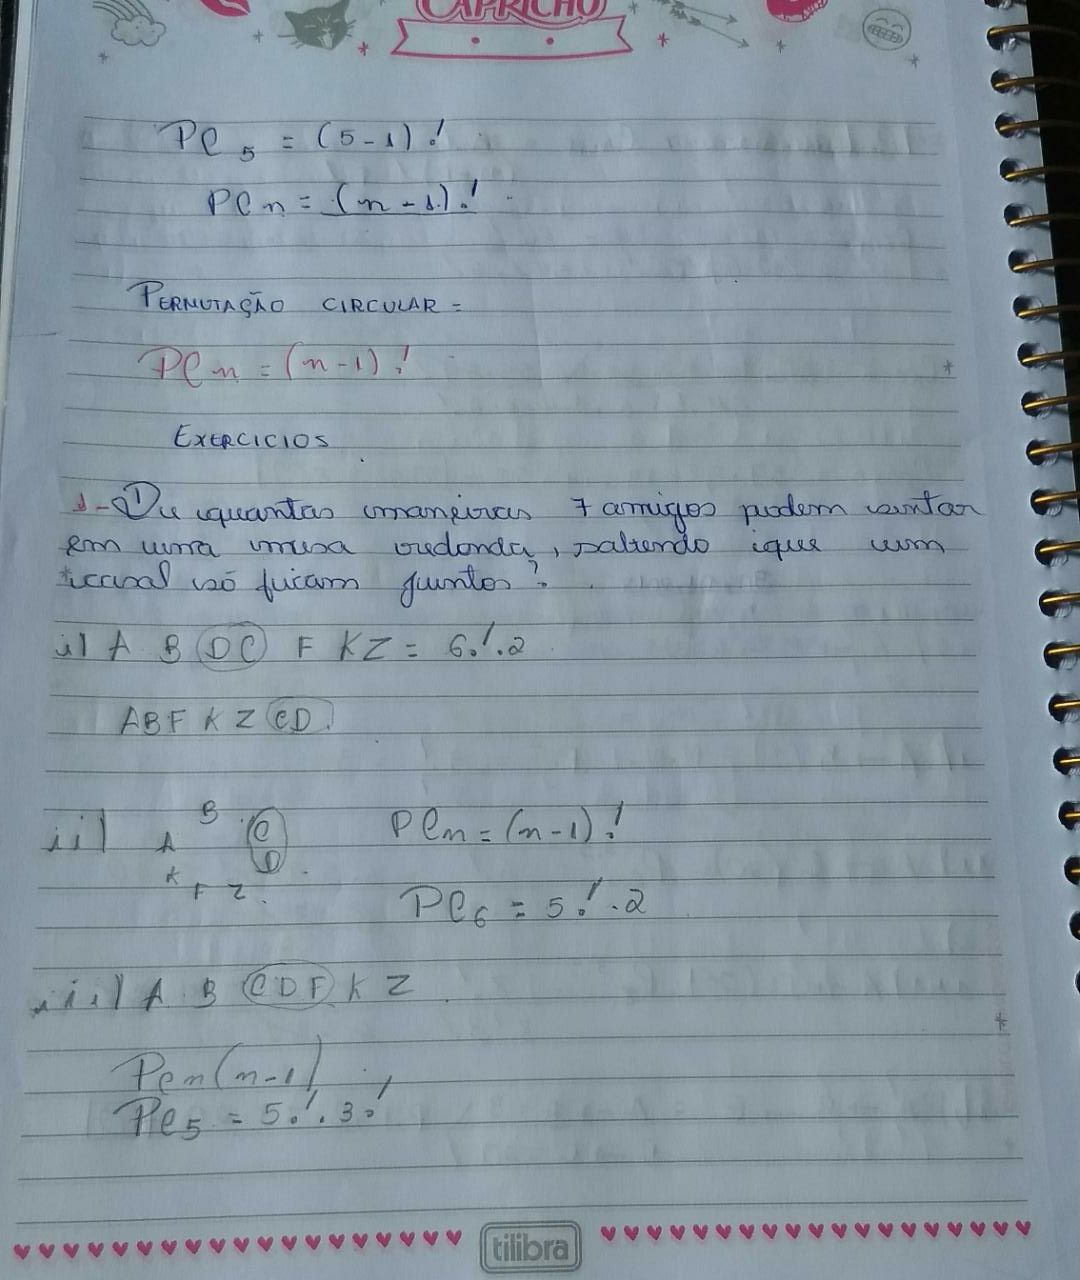 CAPRICHO
PC5 = (5-1)!
PCn = (n-1)!
PERMUTAÇÃO CIRCULAR =
PCn = (n-1)!
EXERCICIOS
1- De quantas maneiras 7 amigos podem sentar
em uma mesa redonda, sabendo que um
casal só ficam juntos?
i) A B DC F K Z = 6!.2
A B F K Z CD
ii) B
A C
D
K F Z
PCn = (n-1)!
PC6 = 5!.2
iii) A B CDF K Z
PCn(n-1)
PC5 = 5!.3!
tilibra